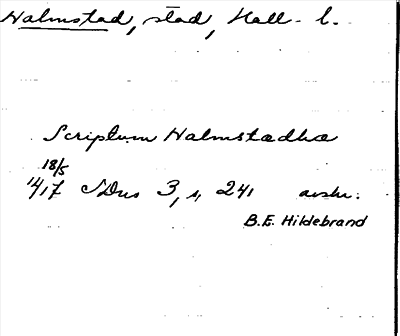 Halmstad, stad, Hall. l.
Scriptum Halmstadhæ
18/5
1417 SDns 3, s. 241 avskr.
B.E. Hildebrand